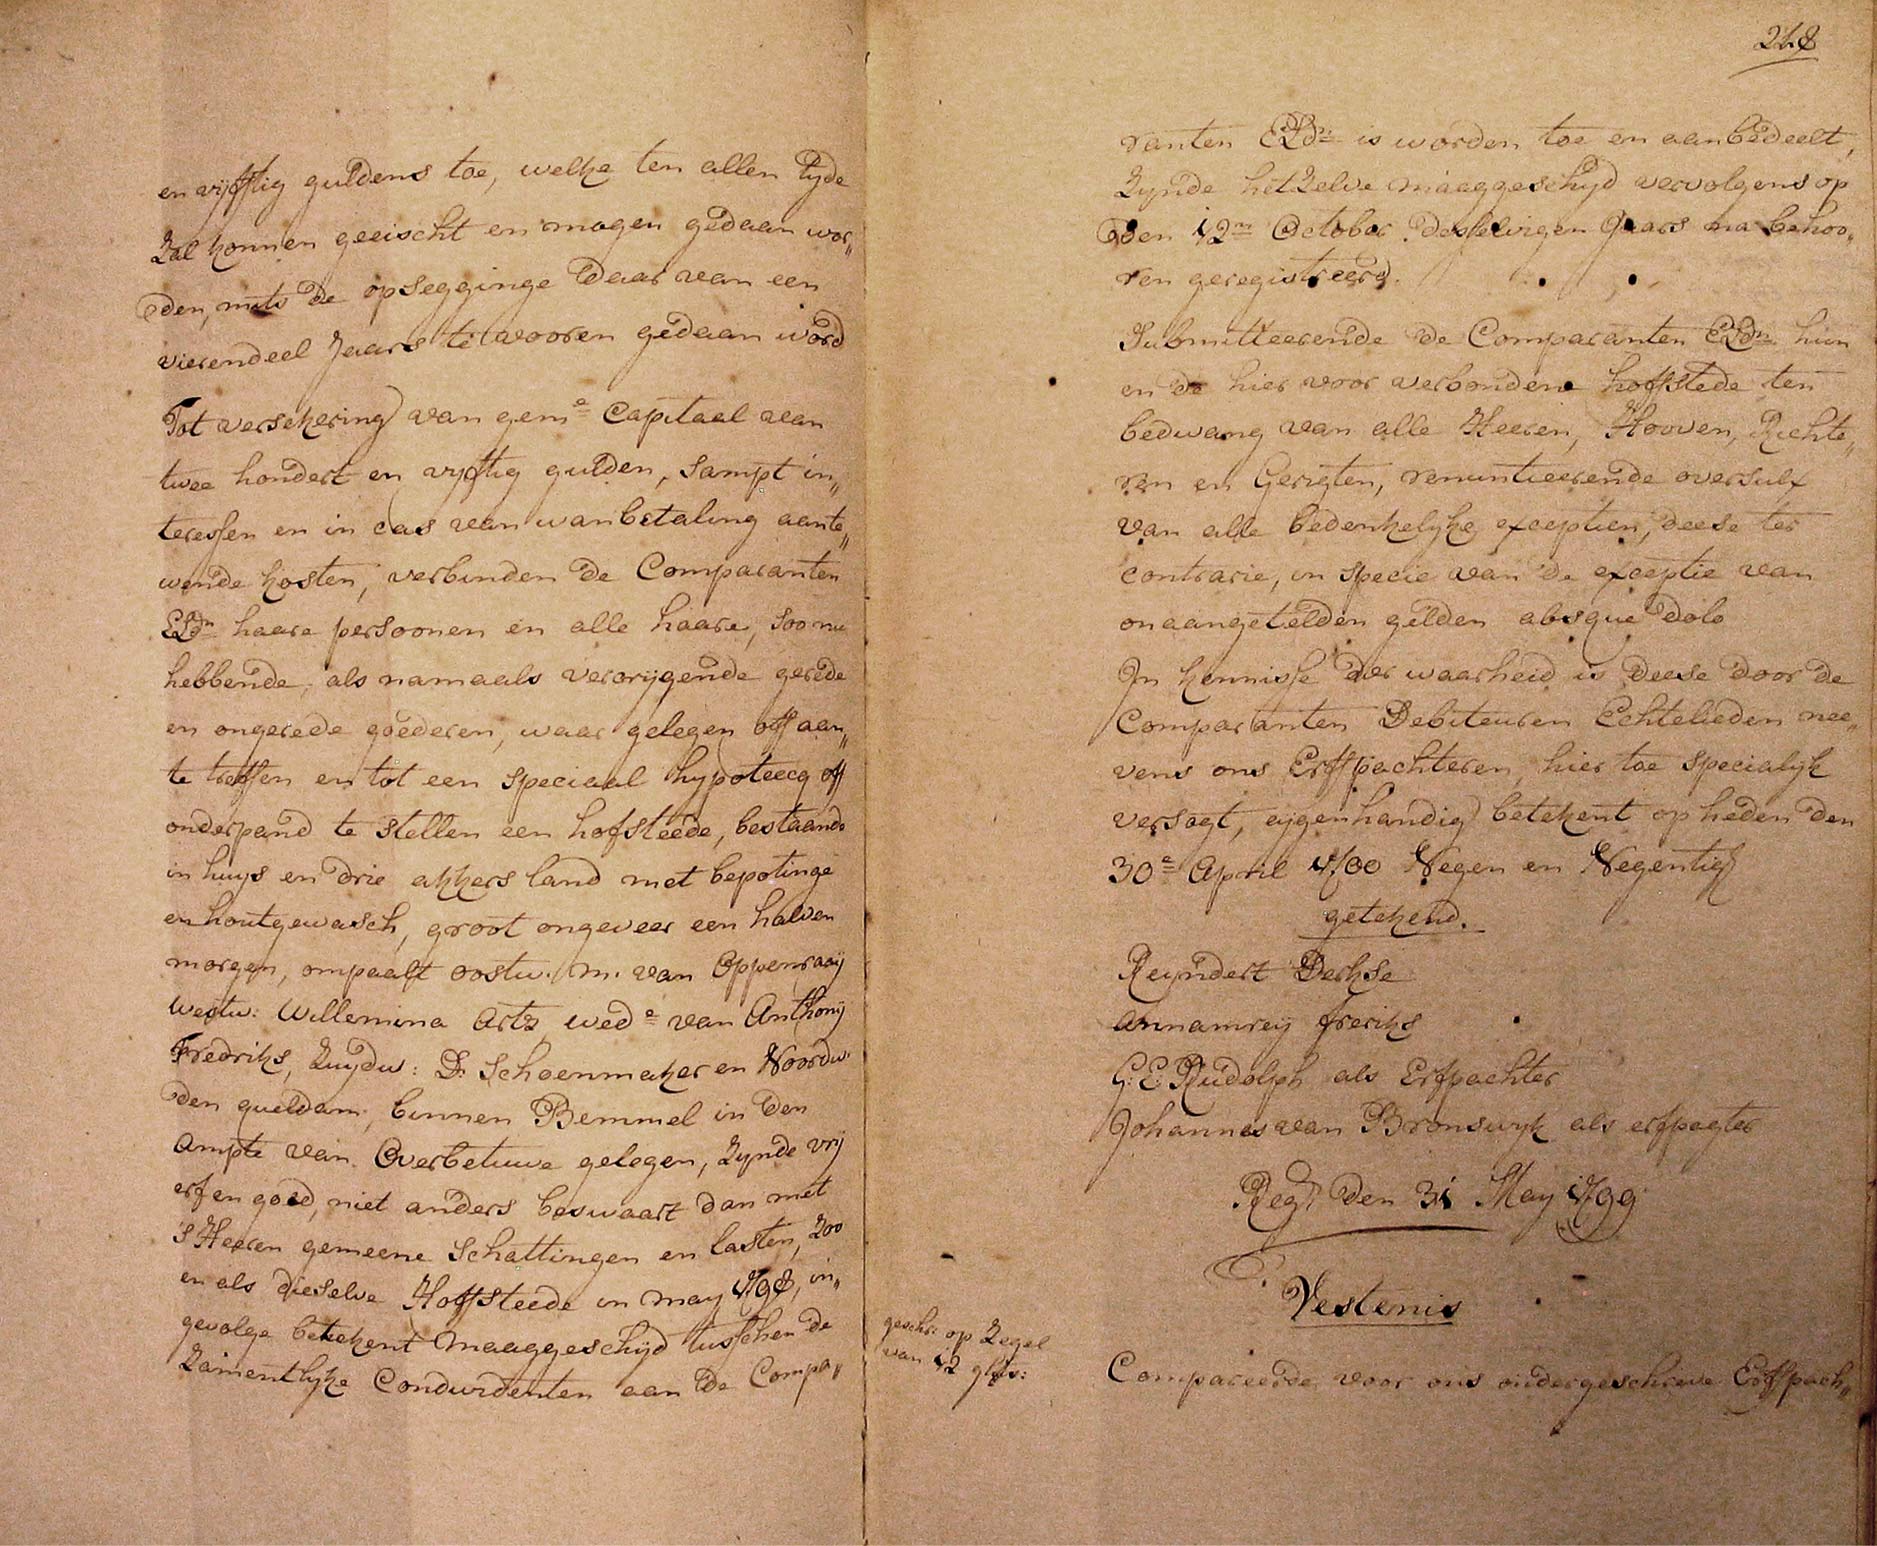 en vijfftig guldens toe, welke ten allen tyde
Zal konnen geeischt en mogen gedaan wor„
den, mits de opsegginge daar van een
vierendeel Jaars te vooren gedaan word
Tot versekering van geme Capitaal van
twee hondert en vyftig gulden, sampt in„
teressen en in cas van wanbetaling aante„
wende kosten, verbinden de Comparanten
ELdn haare persoonen en alle haare, soo nu
hebbende, als namaals verkrijgende gerede
en ongerede goederen, waar gelegen off aan„
te treffen en tot een speciaal hypoteecq off
onderpand te stellen een hofsteede, bestaande
in huys en drie akkers land met bepotinge
en houtgewasch, groot ongeveer een halven
morgen, ompaalt oostw. M. van Oppenraaij
westw: Willemina Artz wede van Anthonij
Fredriks, Zuydw: D: Schoenmaker en Noordw:
den queldam, binnen Bemmel in den
Ampte van Overbetuwe gelegen, Zynde vrij
erf en goed, niet anders beswaart dan met
's Heeren gemeene Schattingen en lasten, zoo
en als dieselve Hoffsteede in may 1798, in„
gevolge betekent maaggeschijd tusschen de
Zamentlyke Condividenten aan de Compa„
218
ranten ELdn is worden toe en aanbedeelt,
Zynde het Zelve maaggeschyd vervolgens op
den 12n October deszelvigen Jaars na behoo„
ren geregistreerd.
Submitteerende de Comparanten ELdn hun
en de hier voor verbondene hoffstede ten
bedwang van alle Heeren, Hooven, Richte„
ren en Gerigten, renuntieerende oversulx
van alle bedenkelyke exceptien, deese ter
contrarie, in specie van de exceptie van
onaangetelden gelden absque dolo
In kennisse der waarheid is deese door de
Comparanten Debiteuren Echtelieden nee„
vens ons Erffpachteren, hier toe specialyk
versogt, eygenhandig betekent op heden den
30e April 1700 Negen en Negentig
getekend.
Reyndert Derkse
Annamreij freriks
G: E: Rudolph als Erfpachter
Johannes van Bronswyk als erfpagter
Regt den 31 May 1799
Vestenis
geschr: op Zegel
van 12 gls:
Compareerde voor ons ondergeschreve Erffpach„